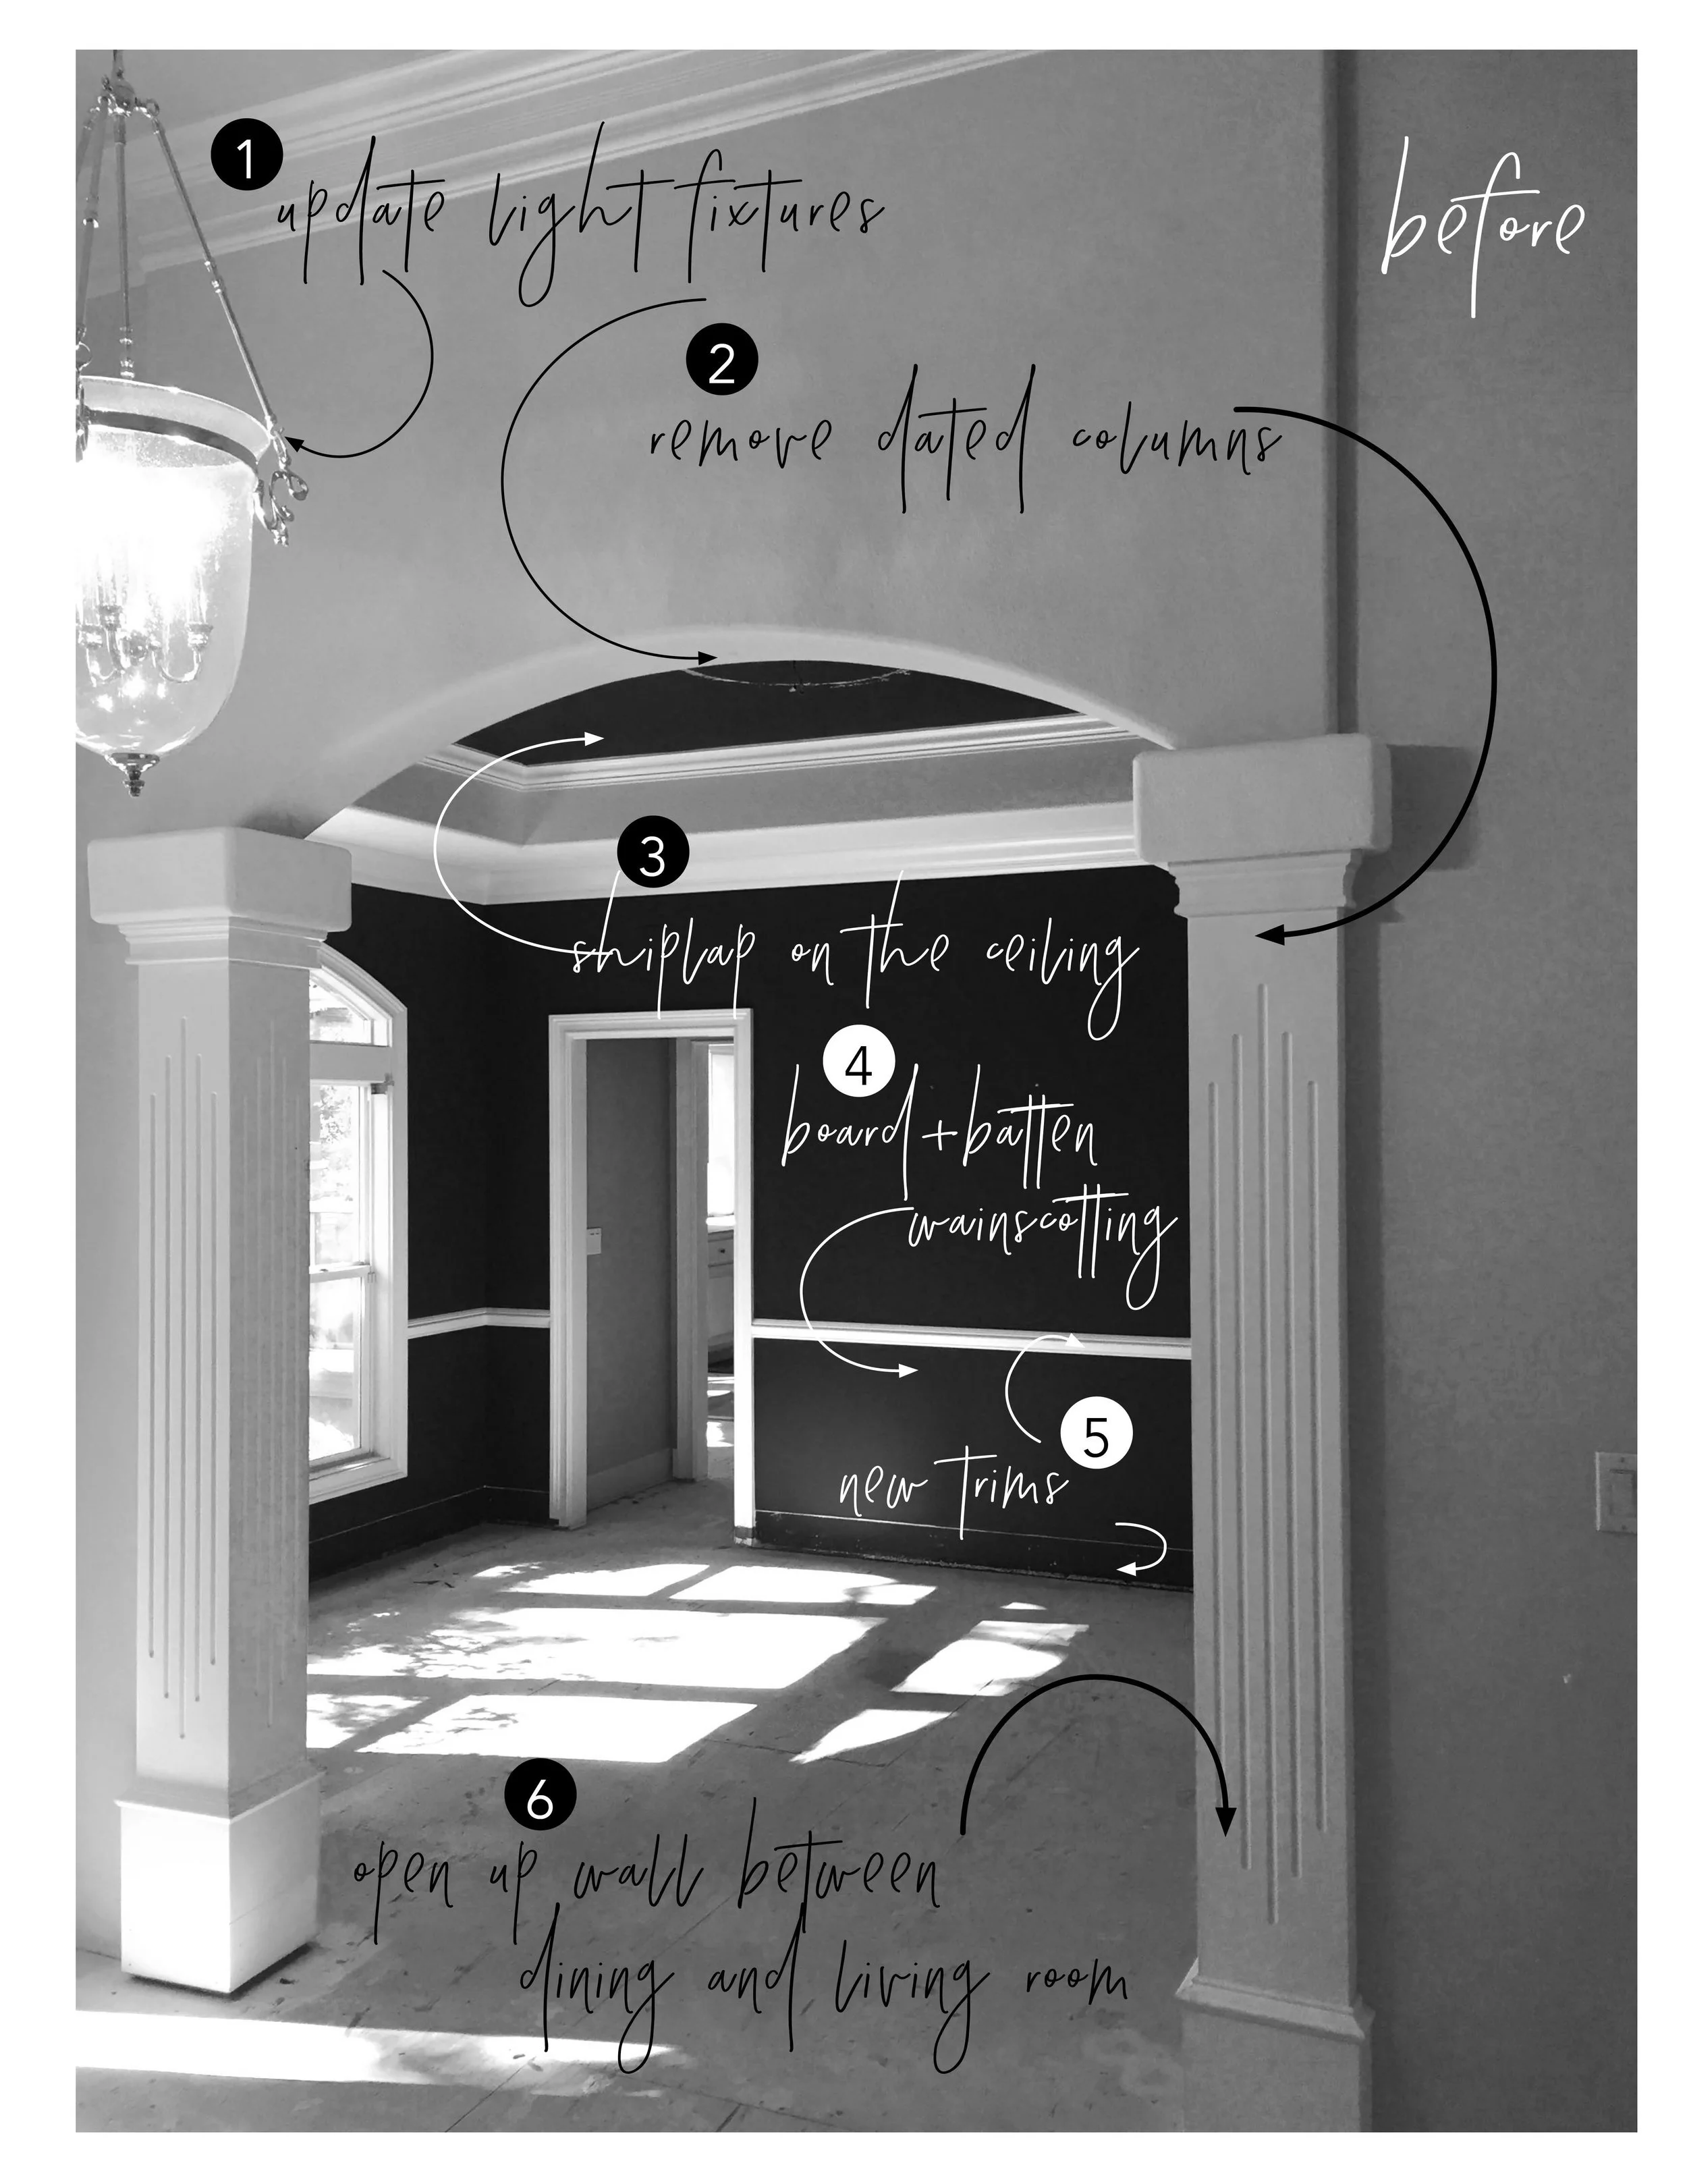 1
update light fixtures
before
2
remove dated columns
3
shiplap on the ceiling
4
board+batten
wainscotting
5
new trims
6
open up wall between
dining and living room